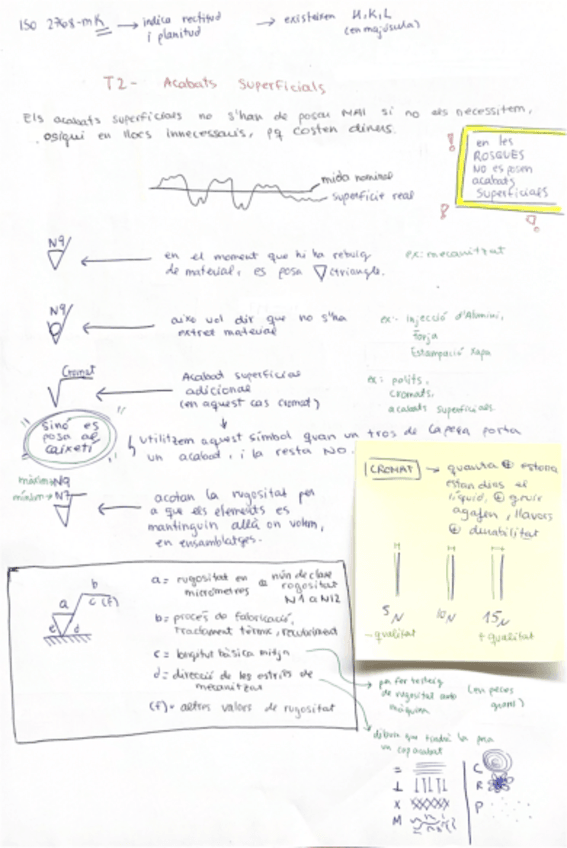 ISO 2768-mK → indica rectitud → existeixen H,K,L
i planitud (en majúscula)
T2- Acabats Superficials
Els acabats superficials no s'han de posar MAI si no els necessitem,
osigui en llocs innecessaris, pq costen diners.
en les
ROSQUES
NO es posen
acabats
superficials
mida nominal
superfície real
N9
en el moment que hi ha rebuig
de material, es posa ▽ triangle.
ex: mecanitzat
N9
això vol dir que no s'ha
extret material
ex:- Injecció d'Alumini,
Forja
Estampació Xapa
Cromat
Acabat superficial
adicional
(en aquest cas cromat)
ex: polits,
cromats,
acabats superficials.
Sinó es
posa al
caixetí
utilitzem aquest símbol quan un tros de la peça porta
un acabat, i la resta NO.
màxim → N9
mínim → N7
acotan la rugositat per
a que els elements es
mantinguin allà on volem,
en ensamblatges.
CROMAT → quanta ⊕ estona
estan dins el
líquid, ⊕ gruix
agafen, llavors
⊕ durabilitat
5N 10N 15N
- qualitat + qualitat
b
a c (f)
e d
a = rugositat en micròmetres o núm de classe rugositat
N1 a N12
b = procés de fabricació,
tractament tèrmic, recubriment
c = longitud bàsica mitja
d = direcció de les estries de
mecanitzat
(f) = altres valors de rugositat
per fer testeig
de rugositat amb (en peces
màquina grans)
dibuix que tindrà la peça
un cop acabat
= C
⊥ R
X P
M